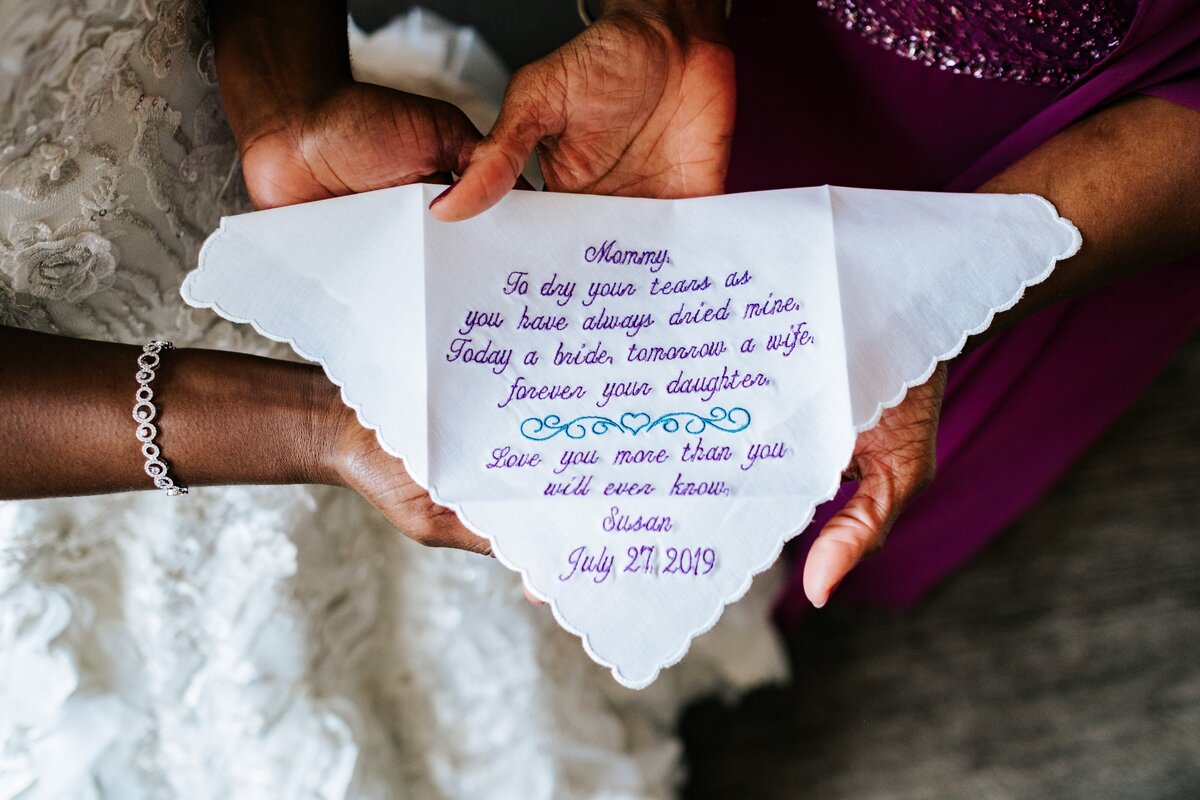 Mommy,
To dry your tears as
you have always dried mine.
Today a bride, tomorrow a wife,
forever your daughter.
Love you more than you
will ever know,
Susan
July 27, 2019